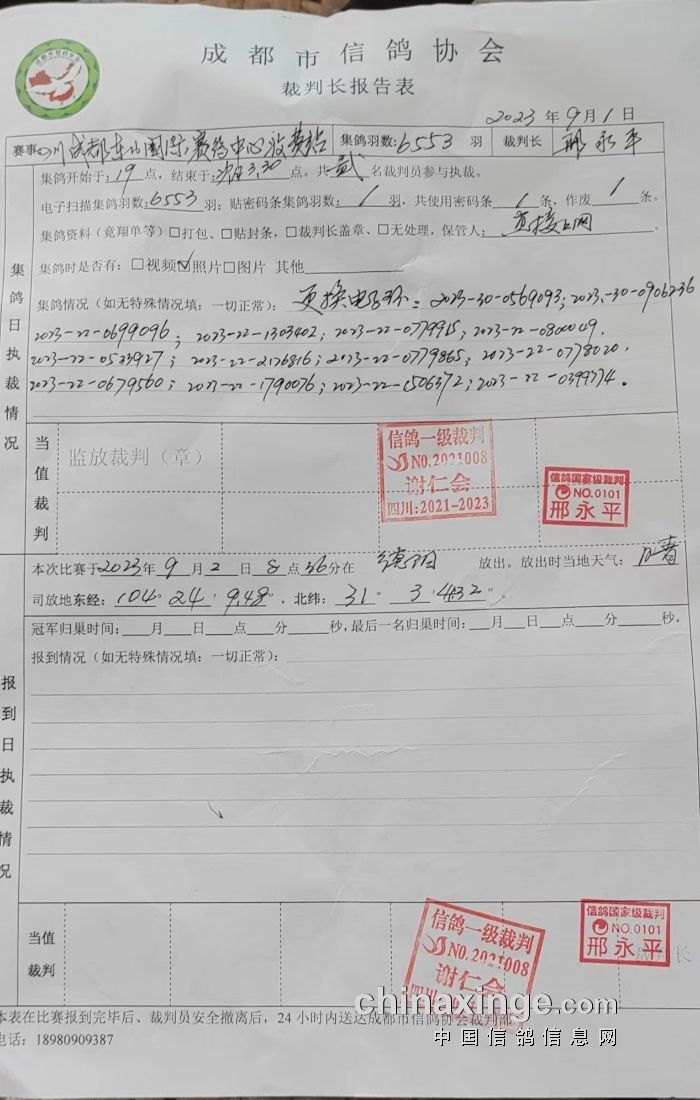 成都市信鸽协会
裁判长报告表
2023年9月1日
赛事: 四川成都东山国际赛鸽中心收费站 集鸽羽数: 6553 羽 裁判长 邢永平
集鸽开始于: 19 点, 结束于: 次日3.30 点。共 贰 名裁判员参与执裁。
电子扫描集鸽羽数: 6553 羽; 贴密码条集鸽羽数: 1 羽, 共使用密码条 1 条, 作废 1 条。
集鸽资料（竟翔单等）□打包、□贴封条, □裁判长盖章、□无处理, 保管人: 直接上网 。
集鸽时是否有: □视频☑照片□图片 其他
集鸽情况（如无特殊情况填: 一切正常）: 更换电子环: 2023-30-0569093; 2023-30-0906236
2023-22-0699096; 2023-22-1303402; 2023-22-0779915; 2023-22-0800049.
2023-22-0533927; 2023-22-2126816; 2023-22-0779865; 2023-22-0778020.
2023-22-0679560; 2023-22-1790076; 2023-22-1506372; 2023-22-0399774.
集鸽日执裁情况
当值裁判
监放裁判（章）
信鸽一级裁判
NO.2021008
谢仁会
四川:2021-2023
信鸽国家级裁判
NO.0101
邢永平
本次比赛于2023年 9 月 2 日 8 点 36 分在 德阳 放出。放出时当地天气:
司放地东经: 104° 24' 9.48", 北纬: 31° 3' 4.32"。
冠军归巢时间: 月 日 点 分 秒, 最后一名归巢时间: 月 日 点 分 秒,
报到情况（如无特殊情况填: 一切正常）:
报到日执裁情况
当值裁判
信鸽一级裁判
NO.2021008
谢仁会
信鸽国家级裁判
NO.0101
邢永平
本表在比赛报到完毕后、裁判员安全撤离后, 24 小时内送达成都市信鸽协会裁判部
电话: 18980909387
chinaxinge.com
中国信鸽信息网